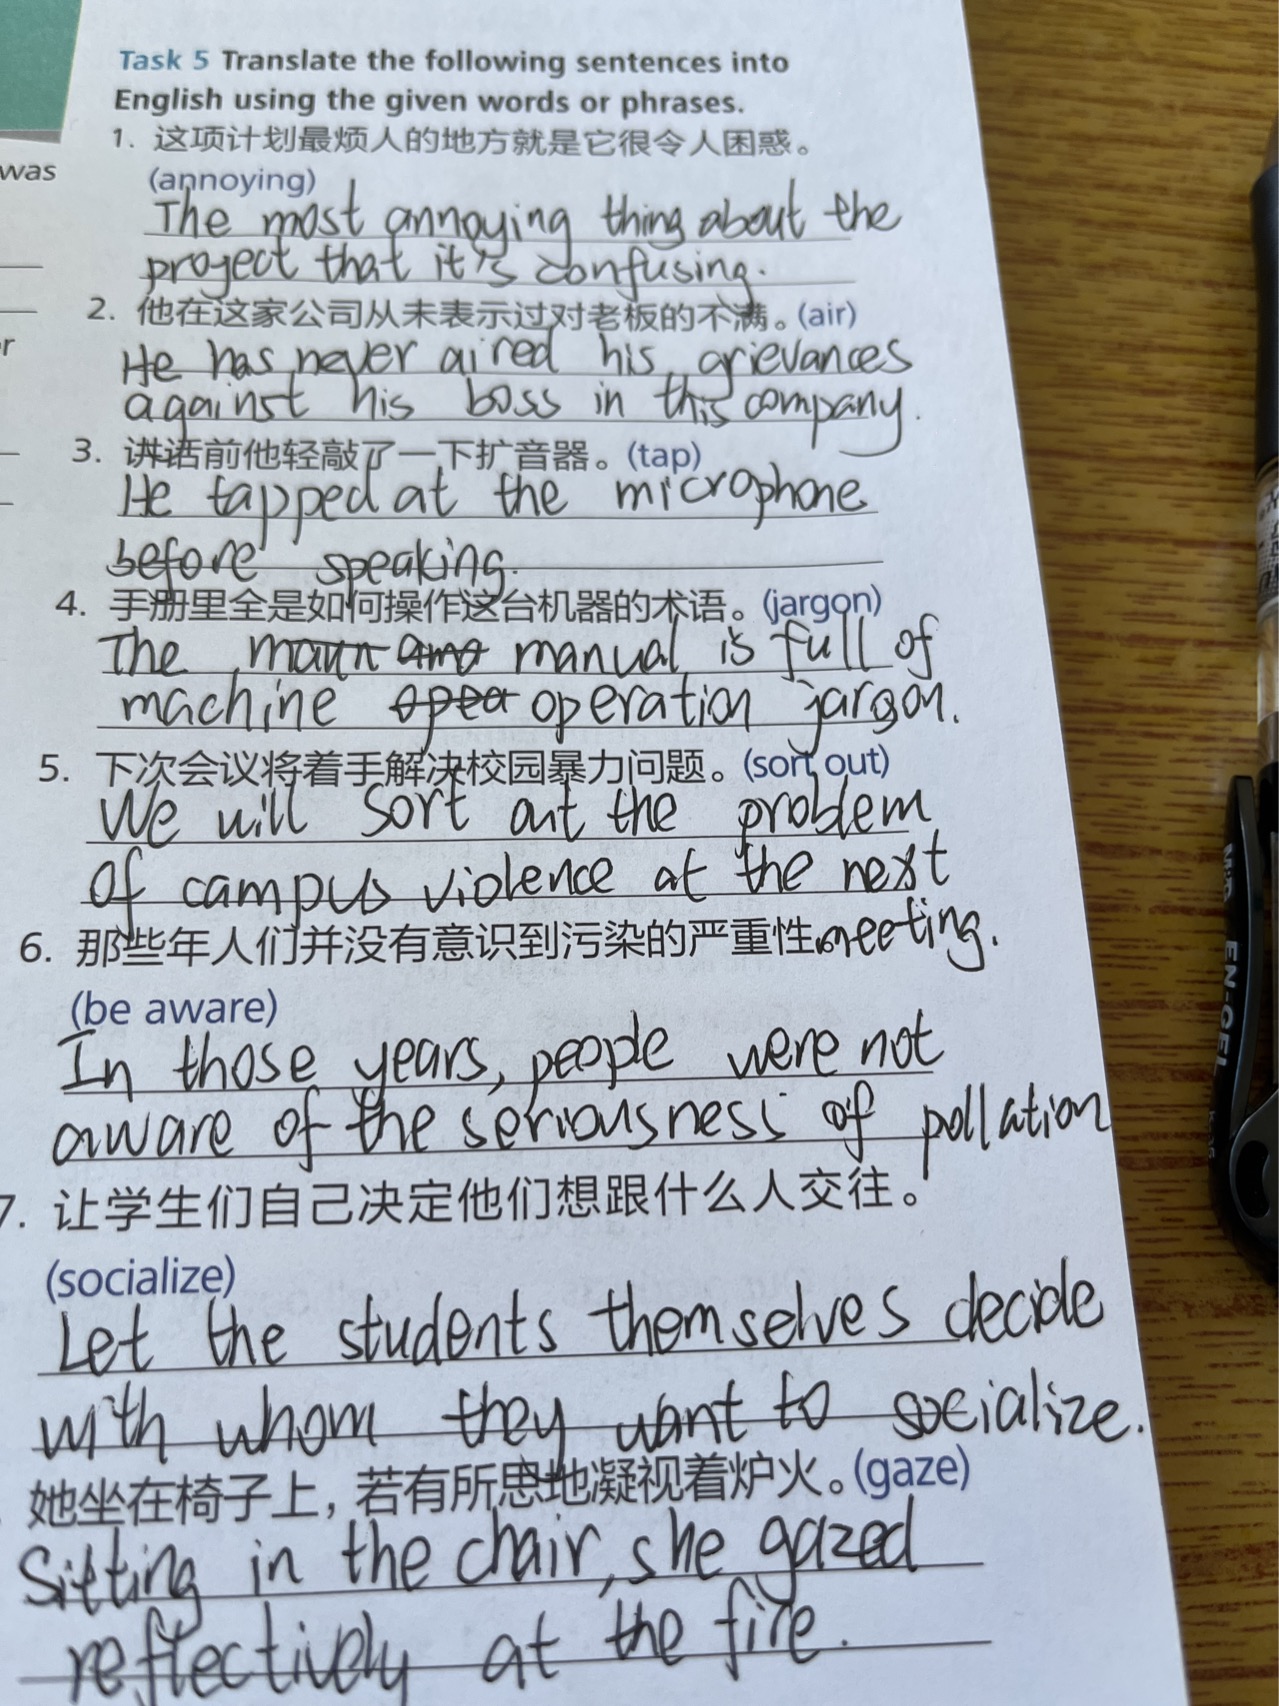 Task 5 Translate the following sentences into
English using the given words or phrases.
1. 这项计划最烦人的地方就是它很令人困惑。
was
(annoying)
The most annoying thing about the
project that it's confusing.
2. 他在这家公司从未表示过对老板的不满。(air)
r
He has never aired his grievances
against his boss in this company.
3. 讲话前他轻敲了一下扩音器。(tap)
He tapped at the microphone
before speaking.
4. 手册里全是如何操作这台机器的术语。(jargon)
The manual is full of
machine operation jargon.
5. 下次会议将着手解决校园暴力问题。(sort out)
We will sort out the problem
of campus violence at the next
meeting.
6. 那些年人们并没有意识到污染的严重性
(be aware)
In those years, people were not
aware of the seriousness of pollation
7. 让学生们自己决定他们想跟什么人交往。
(socialize)
Let the students themselves decide
with whom they want to socialize.
她坐在椅子上，若有所思地凝视着炉火。(gaze)
Sitting in the chair, she gazed
reflectively at the fire.
EN-GEL